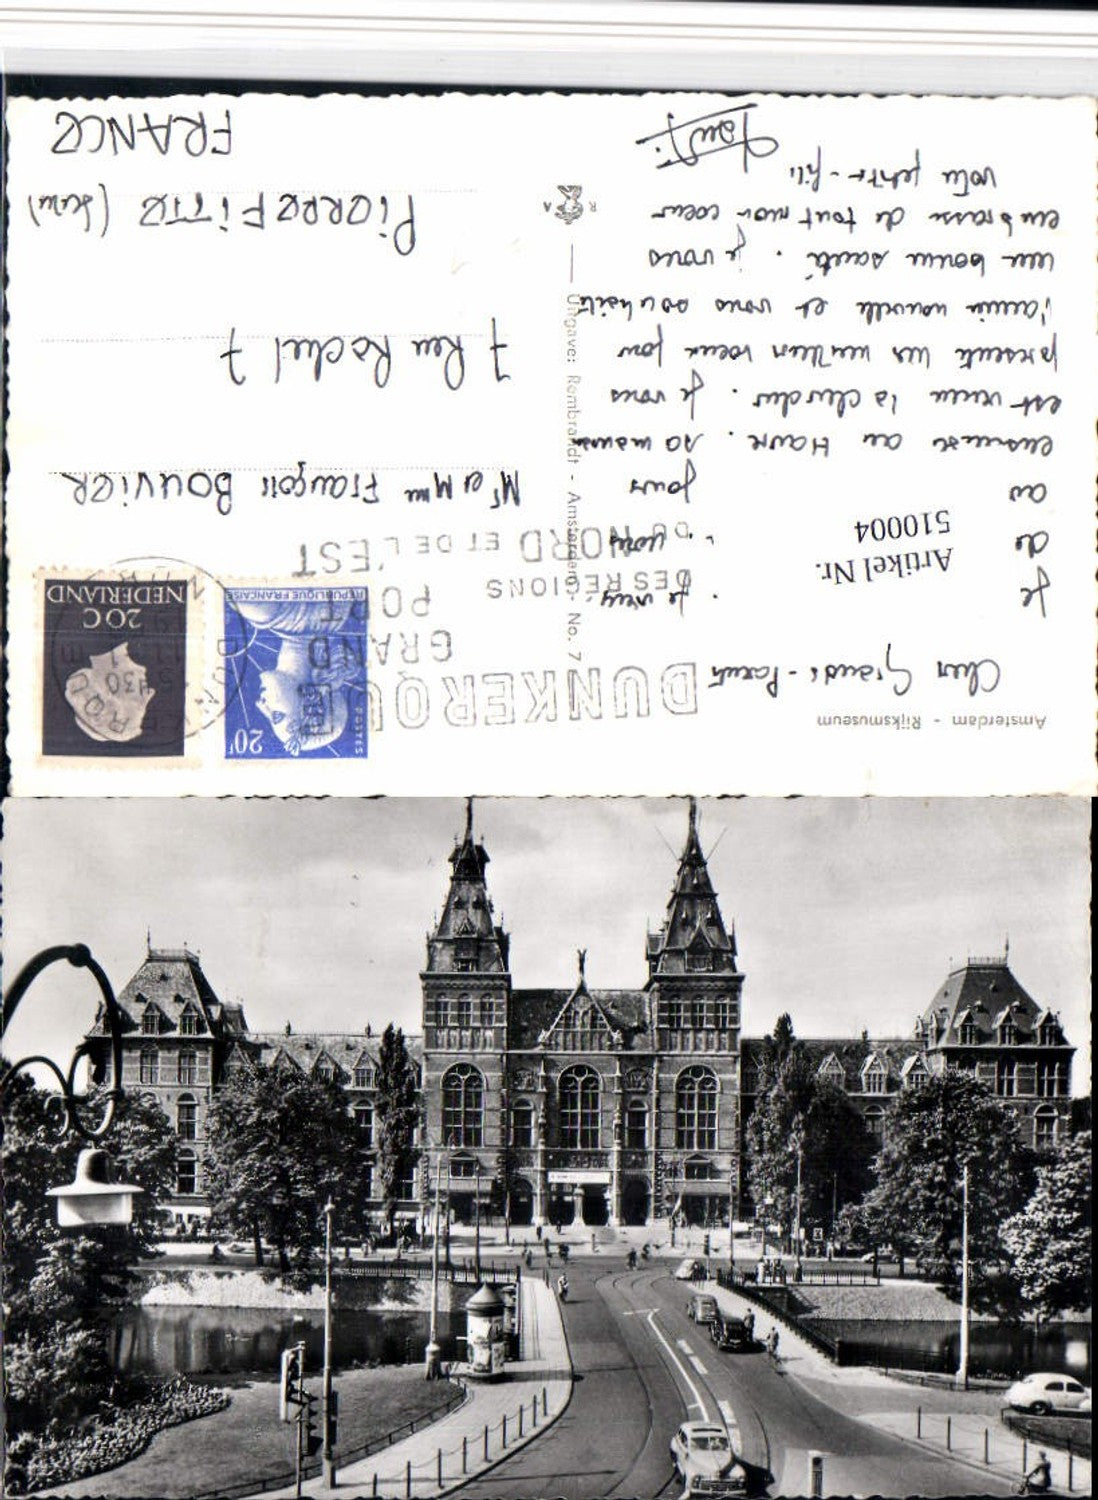 Amsterdam - Rijksmuseum
Chers Grands-Parents
Je
de vous
au jours
heureuse au Havre. sa maman
est venue la chercher. Je vous
presente mes meilleurs voeux pour
l'année nouvelle et vous souhaite
une bonne santé. je vous
embrasse de tout mon coeur
votre petite-fille
Artikel Nr.
510004
Uitgave: Rembrandt - Amsterdam - No. 7
R A
DUNKERQUE
GRAND PORT
DES REGIONS
DU NORD ET DE L'EST
POSTES
20F
REPUBLIQUE FRANÇAISE
20C
NEDERLAND
Mr et Mme François BOUVIER
7 Rue Rachel 7
PIERREFITTE (Seine)
FRANCE